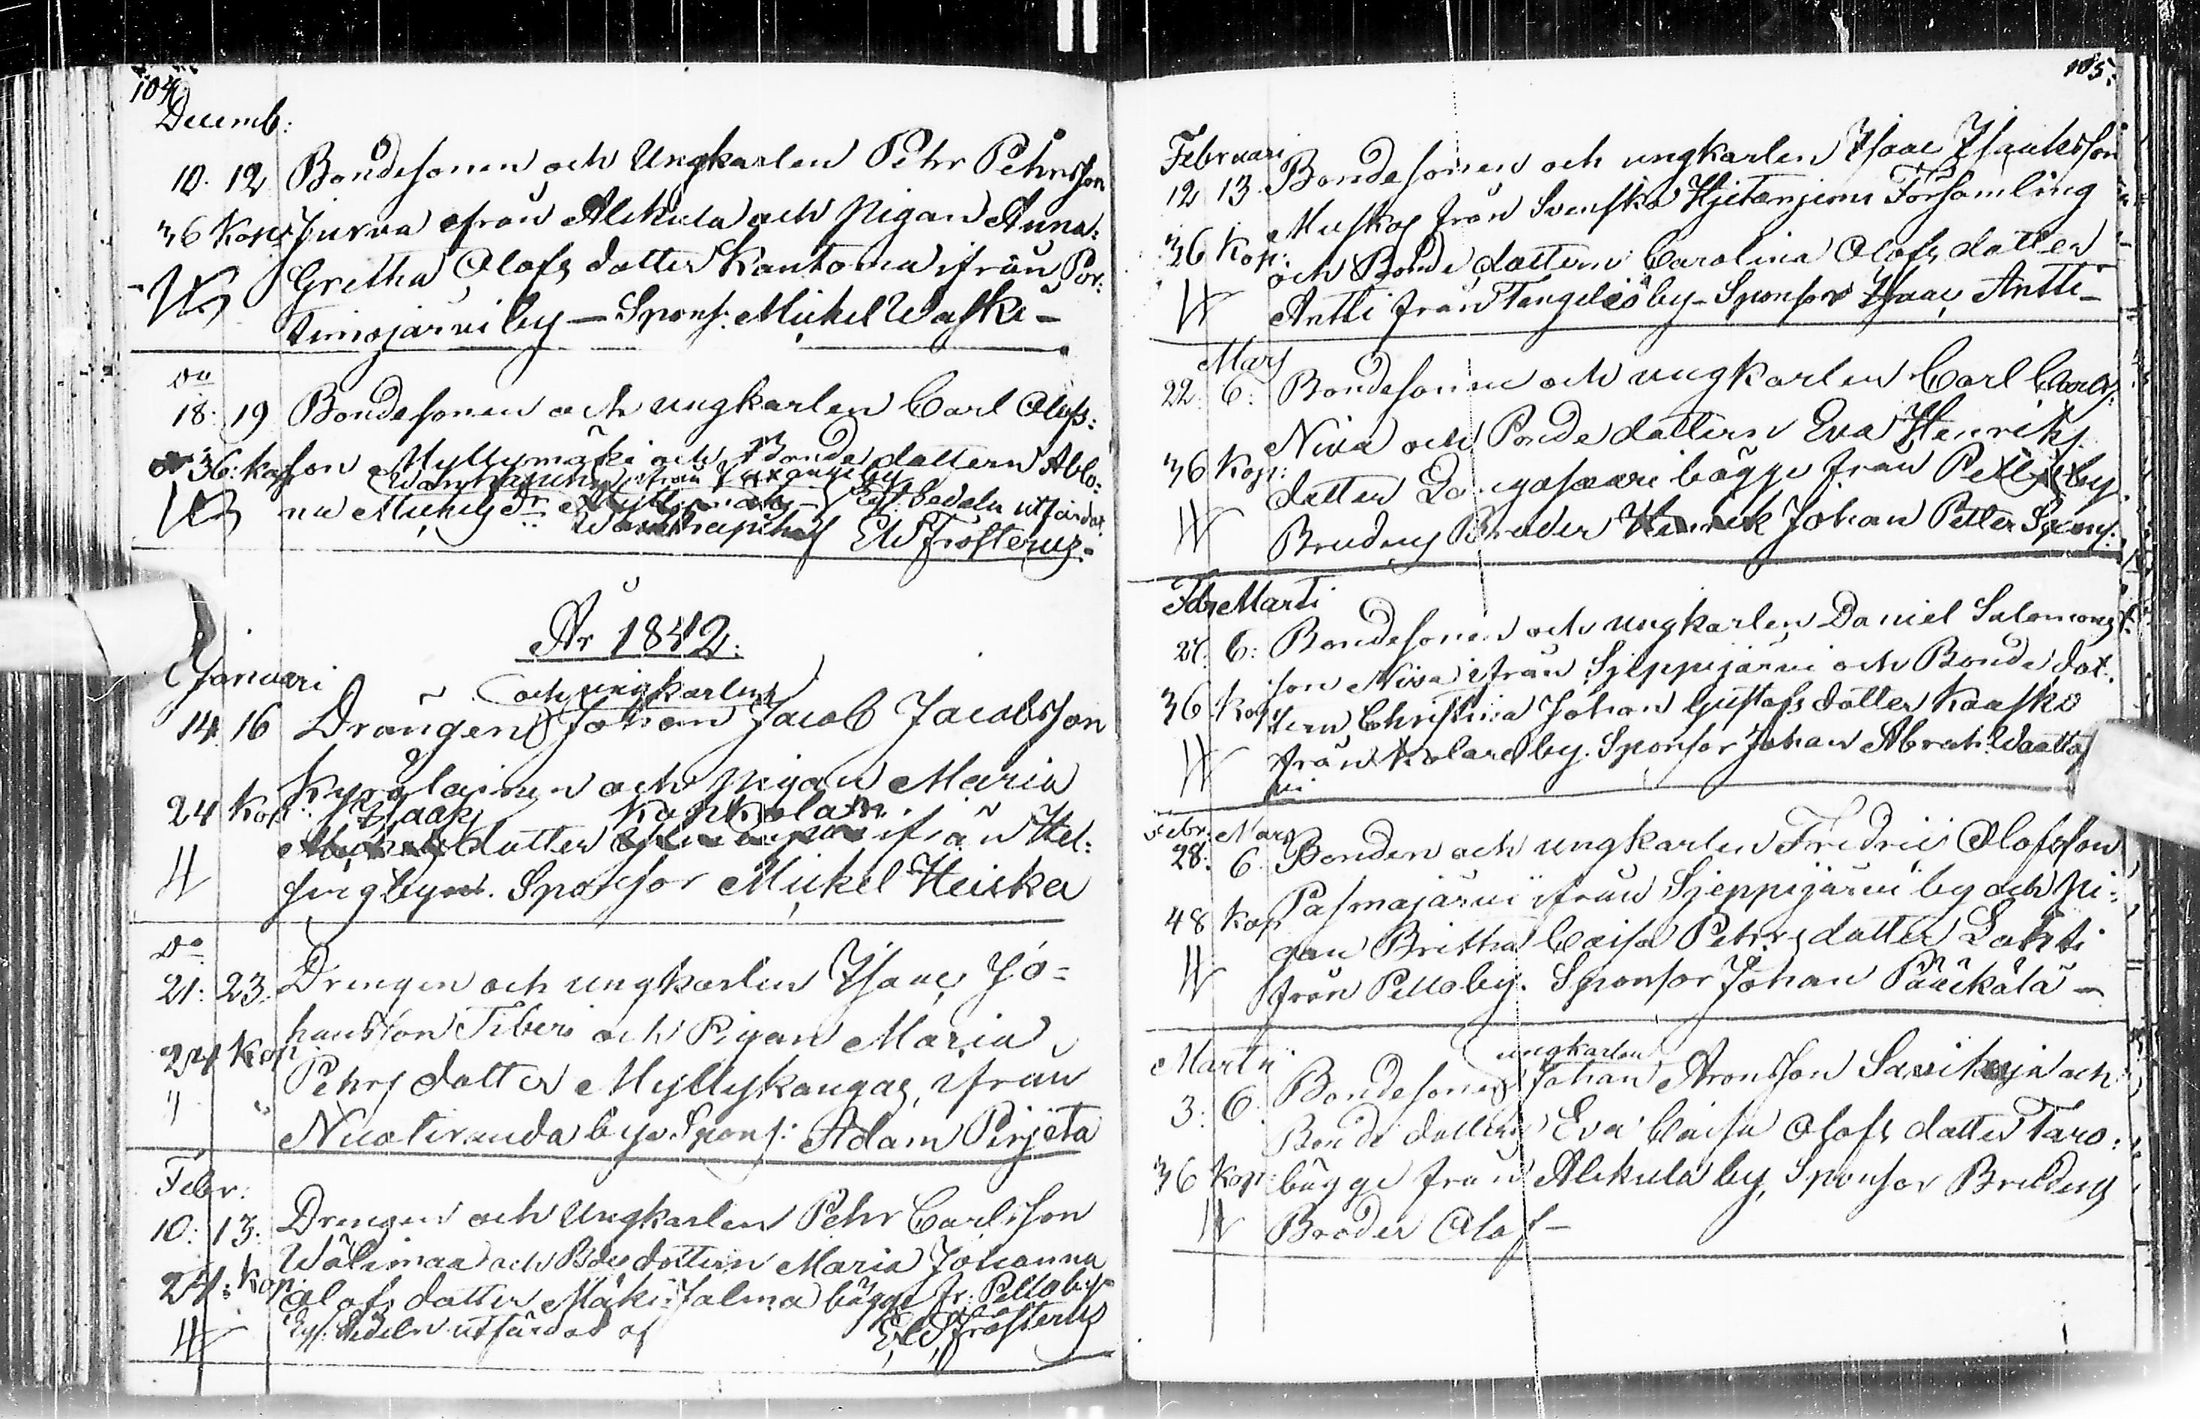 104.
Decemb:
10. 12 Bondesonen och Ungkarlen Pehr Pehrsson
36 Kop: Jurva ifrån Alkula och Pigan Anna
Gretha Olofs dotter Kantoma ifrån Por-
timojärvi by — Spons: Michel Waski —
Do
18. 19 Bondesonen och ungkarlen Carl Olofs-
36: Kop son Myllymäki och Bonde dottern Ablo-
ifrån
na Michels Dr Ejst. Sedeln utfärdat
af El. Frosterus.
År 1842.
Januari
och ungkarlen
14. 16 Drängen Johan Jacob Jacobsson
och pigan Maria
24 Kop: Isaac
dotter ifrån Hel-
sing by. Sponsor Michel Heicka
Do
21. 23. Drengen och ungkarlen Isaac Jo-
hansson Fiberi och Pigan Maria
24 Kop
Pehrs dotter Myllykangas, ifrån
Nuotiranda by Spons: Adam Pirjeta
Febr:
10. 13. Drengen och Ungkarlen Pehr Carlsson
Wälimaa och Bdes dottern Maria Johanna
24: Kop Olofs dotter Mäki-Jalma bägge fr: Pello by
Ejst. Sedeln utfärdat af El. Frosterus
105.
Februari
12 13. Bondesonen och ungkarlen Isaac Isaksson
Muskos från Svenska Hjetanjemi Församling
36 Kop: och Bonde dottern Carolina Olofs dotter
Antti från Tengeliö by — Sponsor Isaac Antti —
Mars
22. 6. Bondesonen och ungkarlen Carl Carls:
Niva och Bonde dottern Eva Henriks
36 Kop: dotter bägge från Pello by.
Brudens Broder Johan Petter Spons:
Febr Marti
27. 6: Bondesonen och ungkarlen Daniel Salomons-
son Niva ifrån Sjeppijärvi och Bonde dot-
36 Kop tern Christina Johan Gustafs dotter Kaasko
från Kolare by. Sponsor Johan Abrah: Waatta
Febr: Mars
28. 6. Bonden och ungkarlen Fredric Olofsson
Pasmajärvi ifrån Sjeppijärvi by och pi-
48 Kop gan Britha Caisa Pehrs dotter Lahti
från Pello by. Sponsor Johan Pääkölä —
Martii
ungkarlen
3. 6. Bondesonen Johan Aronsson Savikuja och
Bonde dottern Eva Caisa Olofs dotter Taro:
36 Kop: bägge från Alkula by, Sponsor Brudens
Broder Olof —